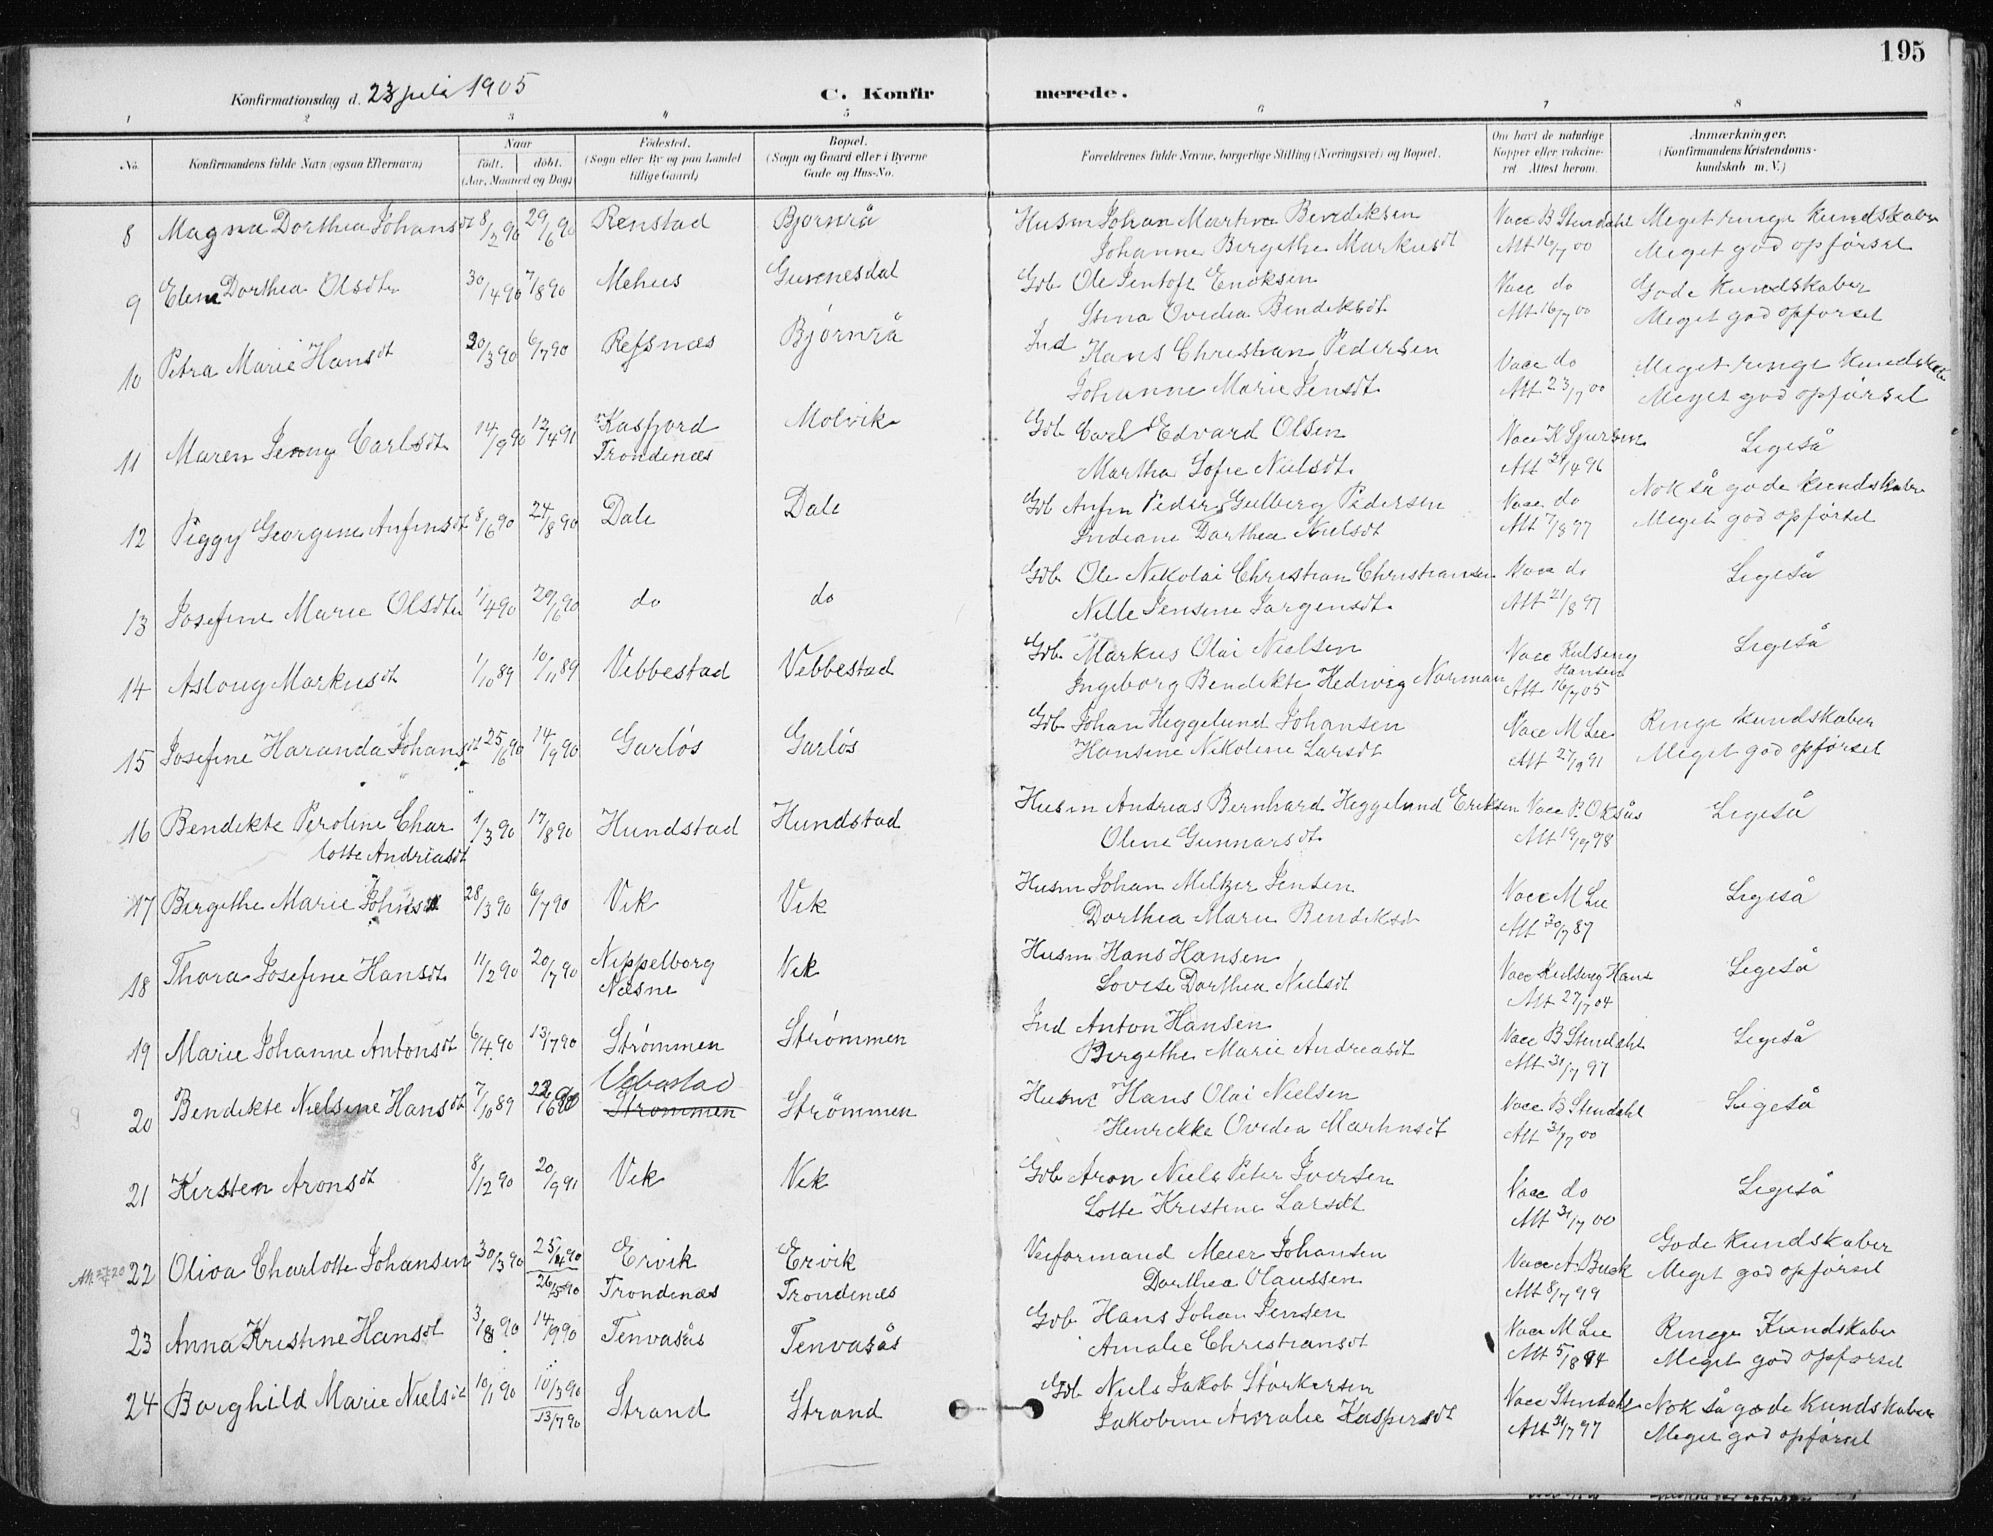 195
Konfirmationsdag d. 23 juli 1905
C. Konfirmerede.
1 2 3 4 5 6 7 8
No. Konfirmandens fulde Navn (ogsaa Efternavn) Naar født. døbt. (Aar, Maaned og Dag) Fødested. (Sogn eller By og paa Landet tillige Gaard) Bopæl. (Sogn og Gaard eller i Byerne Gade og Hus-No. Forældrenes fulde Navne, borgerlige Stilling (Næringsvei) og Bopæl. Om havt de naturlige Kopper eller vaccineret Attest herom. Anmærkninger. (Konfirmandens Kristendomskundskab m. V.)
8 Magna Dorthea Johansdt 8/2 90 29/6 90 Renstad Bjørnrå Husm Johan Martin Bendiksen Vacc B Stendahl Meget ringe kundskaber
Johanne Bergithe Markusdt Att 16/7 00 Meget god opførsel
9 Eline Dorthea Olsdtr 30/4 90 7/8 90 Mehus Gunnesdal Gdb Ole Jentoft Enoksen Vacc do Gode kundskaber
Stina Ovedia Bendiksdt Att 16/7 00 Meget god opførsel
10 Petra Marie Hansdt 20/3 90 6/7 90 Refsnæs Bjørnrå Ind Hans Christian Pedersen Vacc do Meget ringe kundskab
Johanne Marie Jensdt Att 23/7 00 Meget god opførsel
11 Maren Jenny Carlsdtr 14/9 90 12/4 91 Kasfjord Molvik Gdb Carl Edvard Olsen Vacc K Sjursen Ligeså
Trondenæs Martha Sofie Nielsdt. Att 21/4 96
12 Peggy Georgine Anfinsdt 8/6 90 24/8 90 Dale Dale Gdb Anfin Peder Gulberg Pedersen Vacc do Nok så gode kundskaber
Indiane Dorthea Nielsdt Att 7/8 97 Meget god opførsel
13 Josefine Marie Olsdtr 1/4 90 29/6 90 do do Gdb Ole Nikolai Christian Christiansen Vacc do Ligeså
Nille Jensine Jørgensdt. Att 21/8 97
14 Aslaug Markusdt 1/10 89 10/11 89 Vebbestad Vebbestad Gdb. Markus Olai Nielsen Vacc Kulseng Hansen Ligeså
Ingeborg Bendikte Hedvig Norman Att 16/7 05
15 Josefine Haranda Johansdt 25/6 90 14/9 90 Garløs Garløs Gdb Johan Heggelund Johansen Vacc M Lie Ringe kundskaber
Hansine Nikoline Larsdt Att 27/9 91 Meget god opførsel
16 Bendikte Peroline Charlotte Andreasdt 1/3 90 17/8 90 Hundstad Hundstad Husm Andreas Bernhard Heggelund Eriksen Vacc P. Oksås Ligeså
Oline Gunnarsdt. Att 19/9 98
17 Bergithe Marie 28/3 90 6/7 90 Vik Vik Husm Johan Meltzer Jensen Vacc M Lie Ligeså
Dorthea Marie Bendiksdt Att 30/7 87
18 Thora Josefine Hansdt. 11/2 90 20/7 90 Nippelborg Vik Husm Hans Hansen Vacc Kulseng Hans Ligeså
Næsne Lovise Dorthea Nielsdt Att 27/7 04
19 Marie Johanne Antonsdt 6/4 90 13/7 90 Strømmen Strømmen Ind Anton Hansen Vacc B Stendahl Ligeså
Bergithe Marie Andreasdt Att 31/7 97
20 Bendikte Nielsine Hansdt 7/10 89 22/6 90 Vebostad Strømmen Strømmen Husm Hans Olai Nielsen Vacc B Stendahl Ligeså
Henrikke Ovedia Martinsdt Att 31/7 00
21 Kirsten Aronsdt 8/12 90 20/9 91 Vik Vik Gdb Aron Niels Peter Iversen Vacc do Ligeså
Lotte Kristine Larsdt Att 31/7 00
22 Oliva Charlotte Johansen 30/3 90 25/4 90 Ervik Ervik Veiformand Meier Johansen Vacc A. Buck Gode kundskaber
26/5 90 Trondenæs Trondenæs Dorthea Olaussen Att 8/7 99 Meget god opførsel
23 Anna Kristine Hansdt 3/8 90 14/9 90 Tenvasås Tenvasås Gdb Hans Johan Jensen Vacc M Lie Ringe Kundskaber
Amalie Christiansdt Att 5/8 94 Meget god opførsel
24 Borghild Marie Nielsdt 10/1 90 10/3 90 Strand Strand Gdb Niels Jakob Størkersen Vacc Stendahl Nok så gode kundskaber
13/7 90 Jakobine Amalie Kaspersdt Att 31/7 97 Meget god opførsel